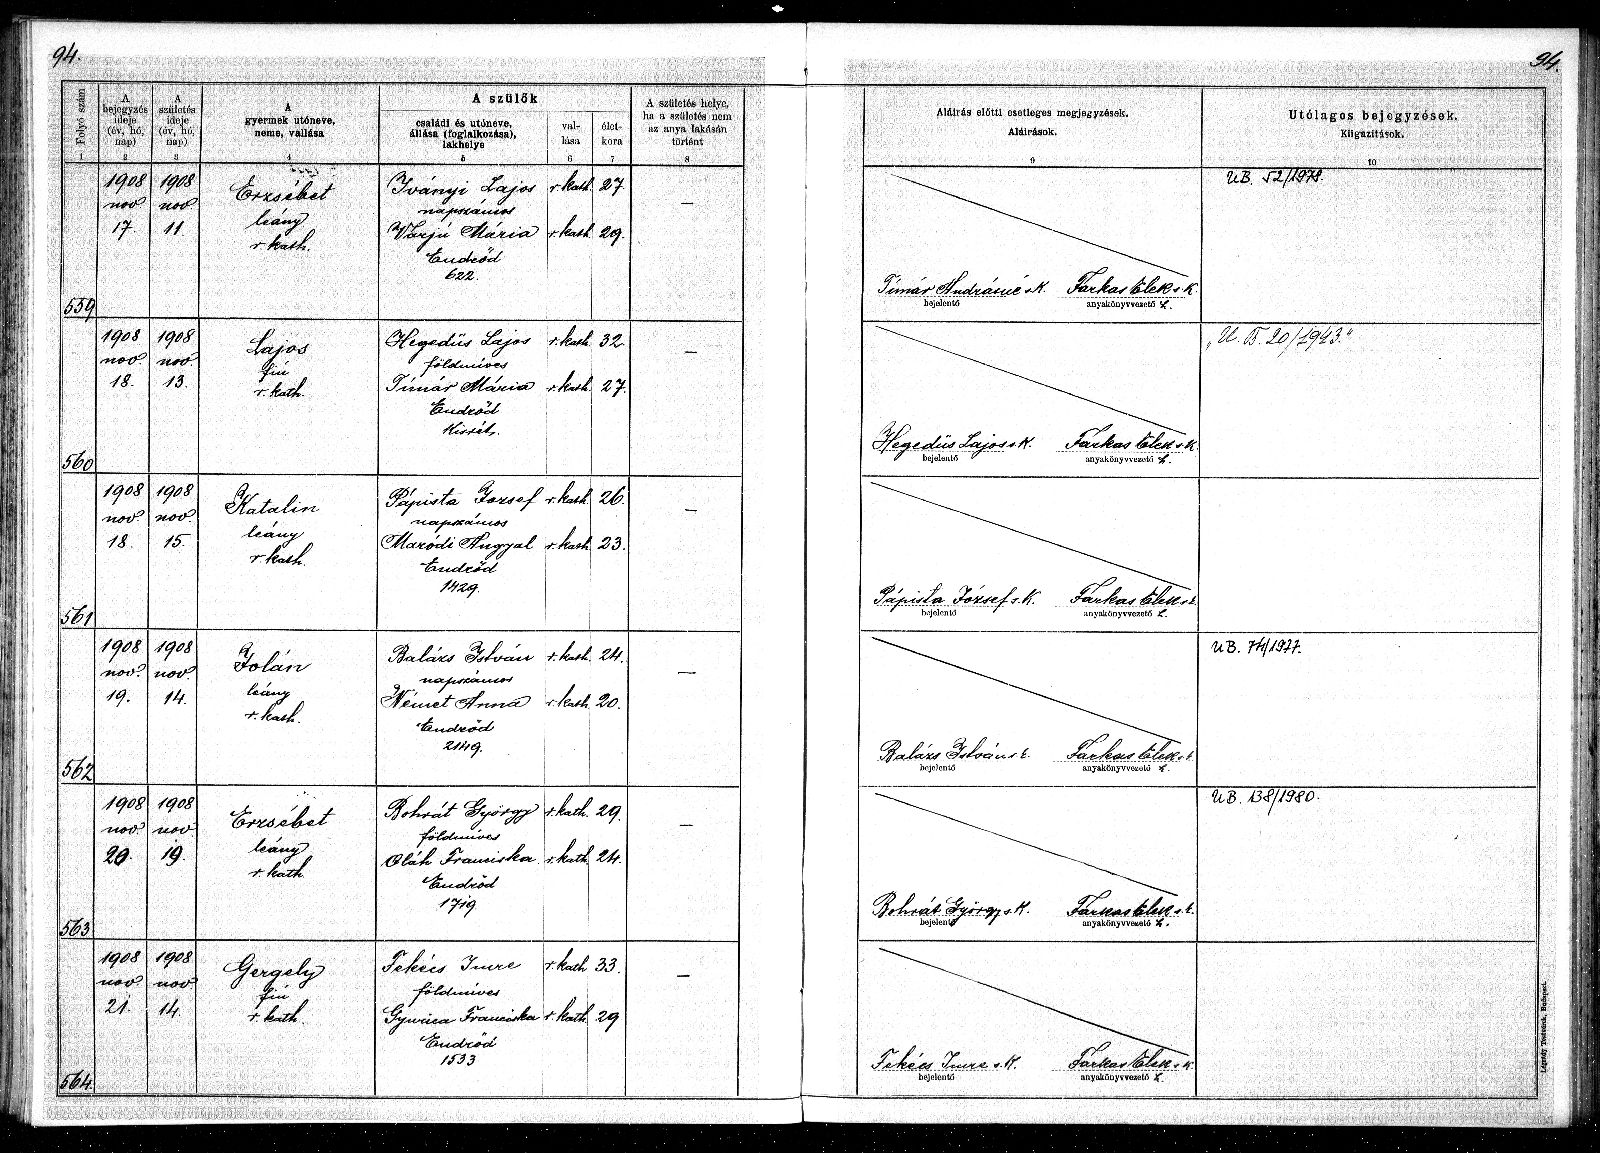 94.
94.
Folyó szám
A bejegyzés ideje (év, hó, nap)
A születés ideje (év, hó, nap)
A gyermek utóneve, neme, vallása
A szülők
családi és utóneve, állása (foglalkozása), lakhelye
vallása
életkora
A születés helye, ha a születés nem az anya lakásán történt
Aláírás előtti esetleges megjegyzések.
Aláírások.
Utólagos bejegyzések.
Kiigazítások.
1 2 3 4 5 6 7 8 9 10
559
1908 nov 17.
1908 nov 11.
Erzsébet
leány
r. kath.
Iványi Lajos r. kath. 27.
napszámos
Varjú Mária r. kath. 29.
Endrőd
622.
—
Tímár Andrásné s. K. Farkas Elek s. K.
bejelentő anyakönyvvezető h.
UB. 52/1978.
560
1908 nov. 18.
1908 nov. 13.
Lajos
fiú
r. kath.
Hegedüs Lajos r. kath. 32.
földmíves
Tímár Mária r. kath. 27.
Endrőd
Kisrét.
—
Hegedüs Lajos s. K. Farkas Elek s. K.
bejelentő anyakönyvvezető h.
„U. B. 20/1943."
561
1908 nov. 18.
1908 nov. 15.
Katalin
leány
r. kath.
Pápista József r. kath. 26.
napszámos
Maródi Angyal r. kath. 23.
Endrőd
1429.
—
Pápista József s. K. Farkas Elek s. k.
bejelentő anyakönyvvezető h.
562
1908 nov. 19.
1908 nov. 14.
Jolán
leány
r. kath.
Balázs István r. kath. 24.
napszámos
Német Anna r. kath. 20.
Endrőd
2149.
—
Balázs István s. k. Farkas Elek s. k.
bejelentő anyakönyvvezető h.
UB. 74/1977.
563
1908 nov. 20.
1908 nov. 19.
Erzsébet
leány
r. kath.
Bohrát György r. kath. 29.
földmíves
Oláh Franciska r. kath. 24.
Endrőd
1719
—
Bohrát György s. K. Farkas Elek s. k.
bejelentő anyakönyvvezető h.
UB. 138/1980.
564.
1908 nov 21.
1908 nov 14.
Gergely
fiú
r. kath.
Tekécs Imre r. kath 33.
földmíves
Franciska r. kath. 29
Endrőd
1533
—
Tekécs Imre s. K. Farkas Elek s. K.
bejelentő anyakönyvvezető h.
Légrády Testvérek, Budapest.